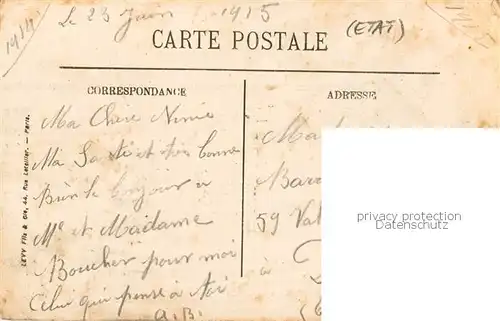 Le 23 Juin 1915
1914
(ETAT)
1915
CARTE POSTALE
CORRESPONDANCE
ADRESSE
Ma Chère Ninie
Ma Santé est très bonne
Bien le bonjour à
Mr et Madame
Boucher pour moi
Celui qui pense à toi
A.B.
Mad
Bar
59 Val
à
LEVY Fils & Cie, 44, Rue Letellier. — Paris.
privacy protection
Datenschutz